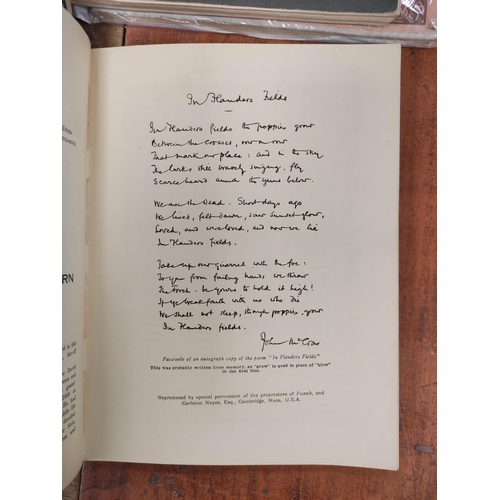 In Flanders Fields
In Flanders fields the poppies grow
Between the crosses, row on row
That mark our place: and in the sky
The larks still bravely singing, fly
Scarce heard amid the guns below.
We are the Dead. Short days ago
We lived, felt dawn, saw sunset glow,
Loved, and were loved, and now we lie
In Flanders fields.
Take up our quarrel with the foe:
To you from failing hands we throw
The torch: be yours to hold it high!
If ye break faith with us who die
We shall not sleep, though poppies grow
In Flanders fields.
John McCrae
Facsimile of an autograph copy of the poem "In Flanders Fields."
This was probably written from memory, as "grow" is used in place of "blow"
in the first line.
Reproduced by special permission of the proprietors of Punch, and
Carleton Noyes, Esq., Cambridge, Mass., U.S.A.
RN